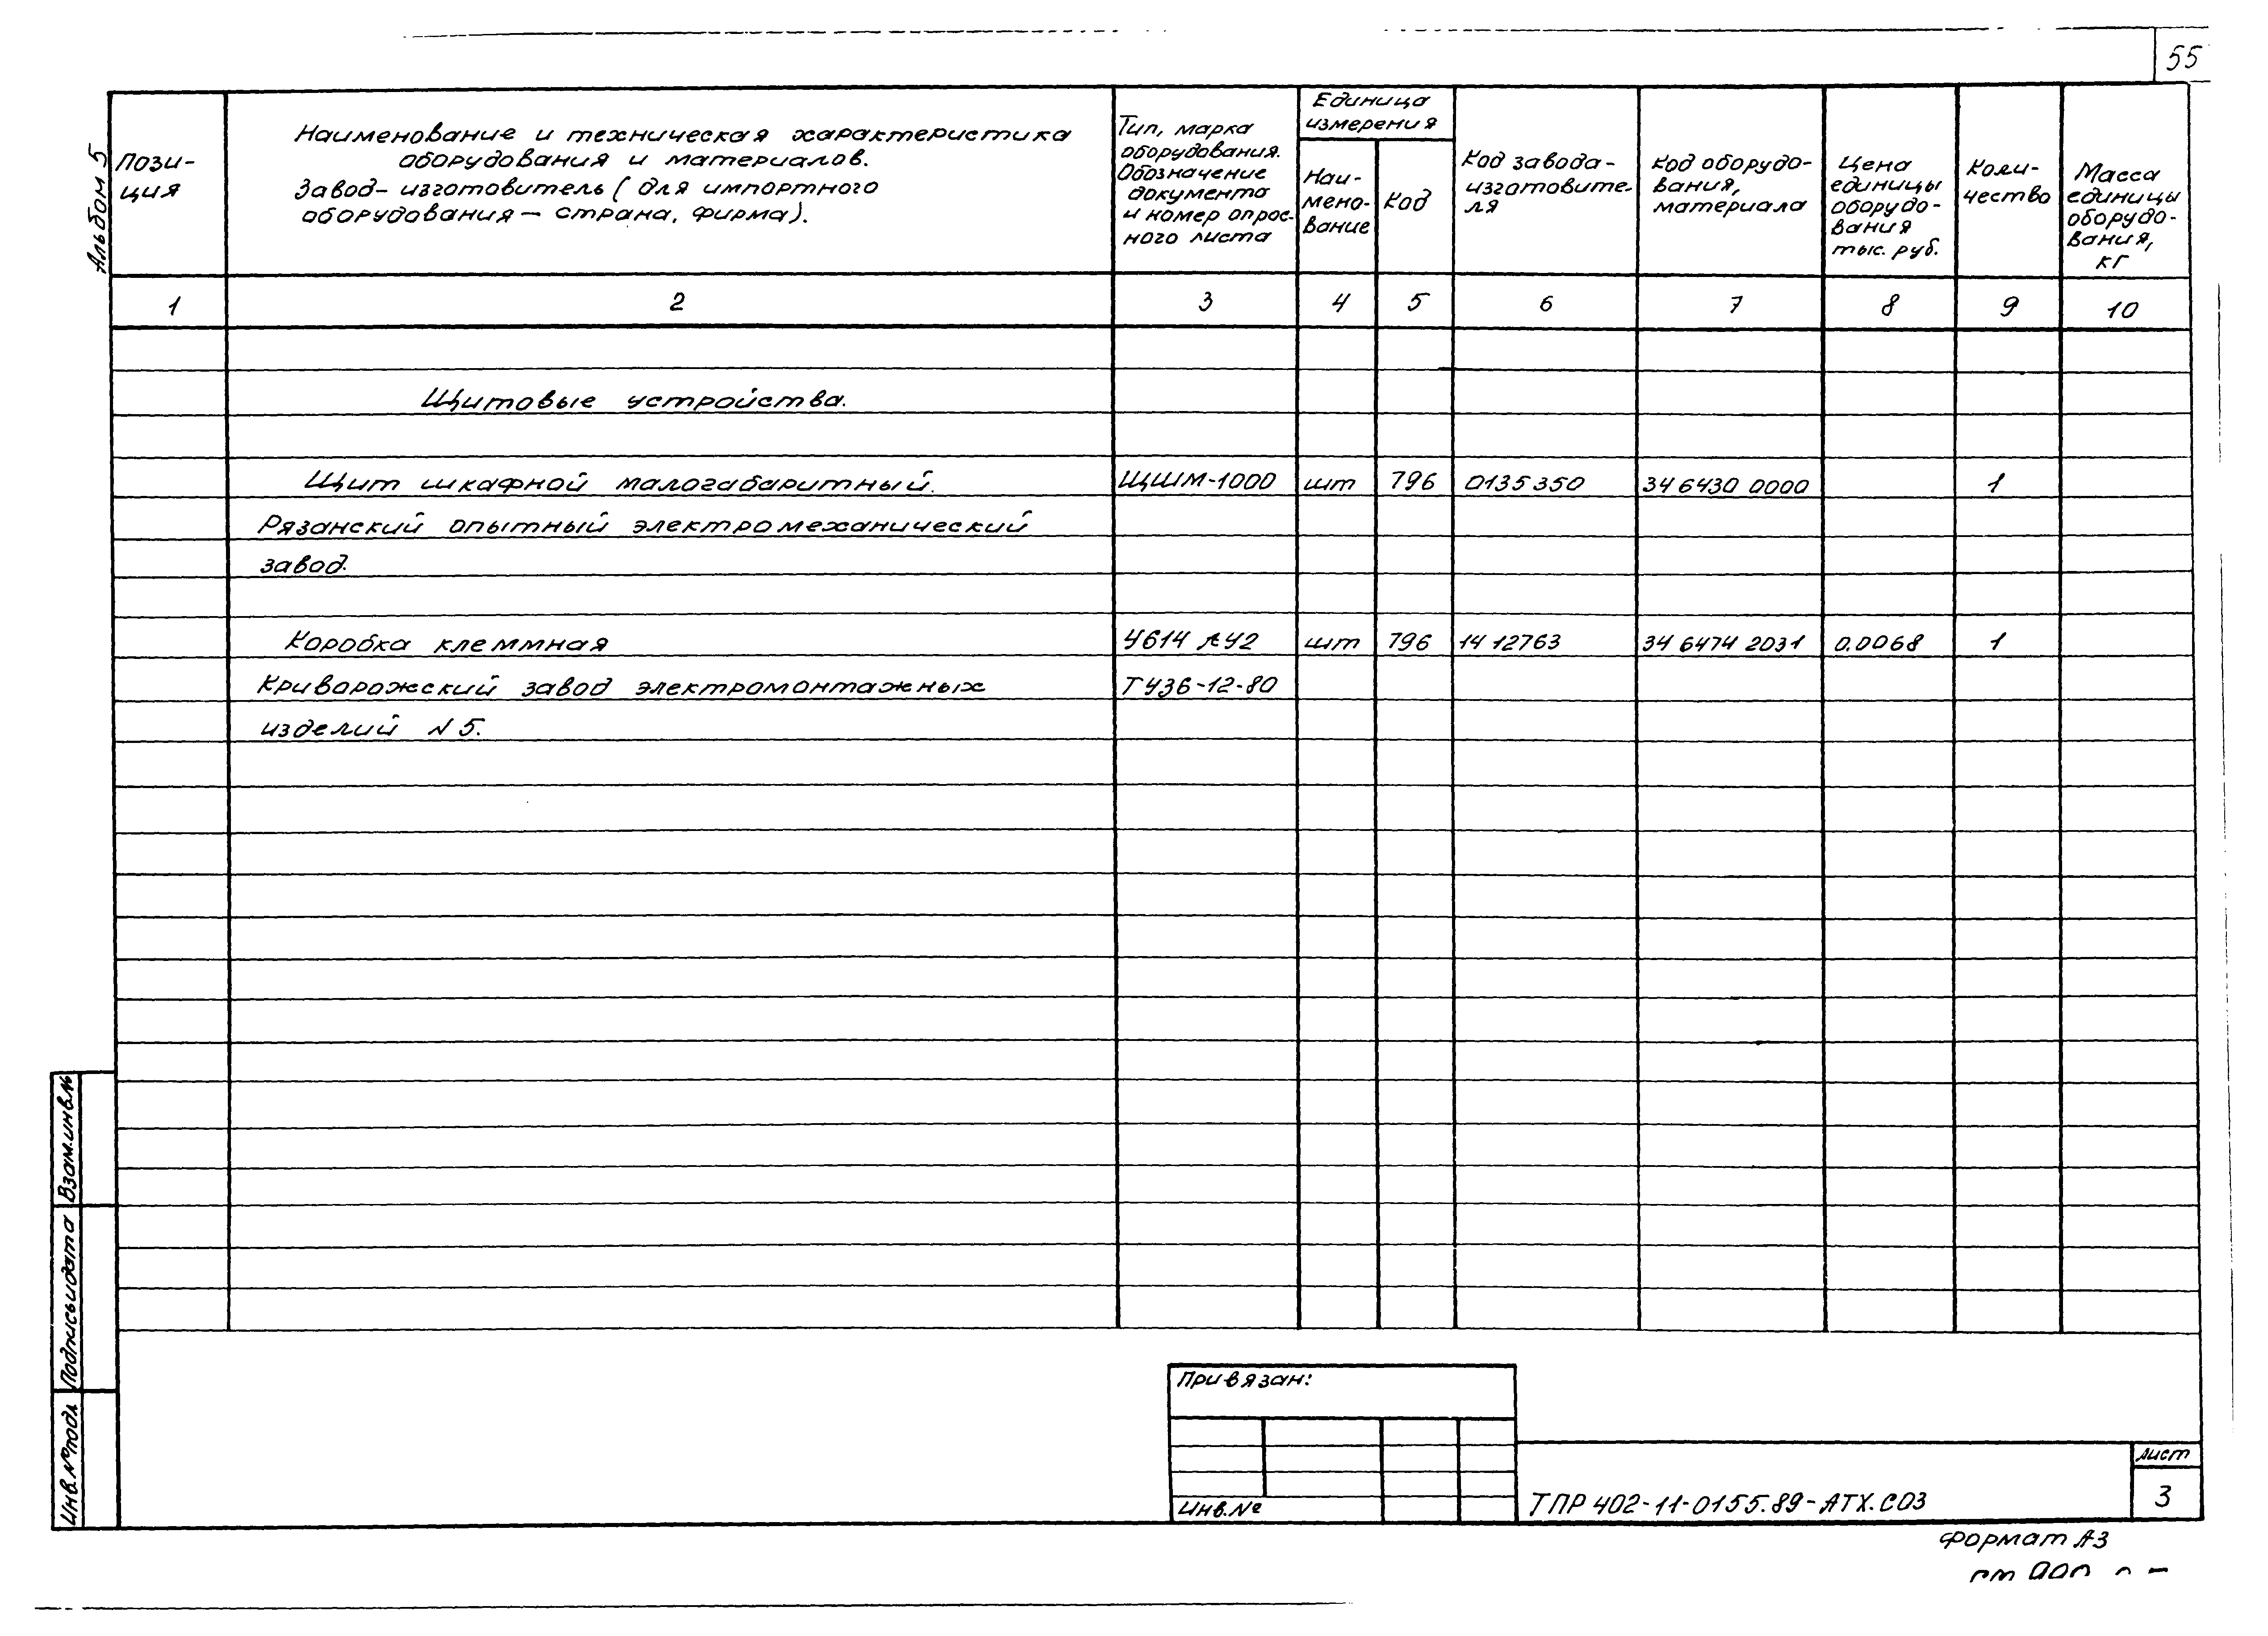 55
Альбом 5
Пози-
ция
Наименование и техническая характеристика
оборудования и материалов.
Завод-изготовитель (для импортного
оборудования — страна, фирма).
Тип, марка
оборудования.
Обозначение
документа
и номер опрос-
ного листа
Единица
измерения
Наи-
мено-
вание
Код
Код завода-
изготовите-
ля
Код оборудо-
вания,
материала
Цена
единицы
оборудо-
вания
тыс. руб.
Коли-
чество
Масса
единицы
оборудо-
вания,
кг
1 2 3 4 5 6 7 8 9 10
Щитовые устройства.
Щит шкафной малогабаритный. ЩШМ-1000 шт 796 0135350 34 6430 0000 1
Рязанский опытный электромеханический
завод.
Коробка клеммная У614 АУ2 шт 796 14 12763 34 6474 2031 0.0068 1
Криворожский завод электромонтажных ТУ36-12-80
изделий N 5.
Взам.инв.№
Подпись и дата
Инв.№подл
Привязан:
Инв.№
ТПР 402-11-0155.89-АТХ.СО3
лист
3
Формат А3